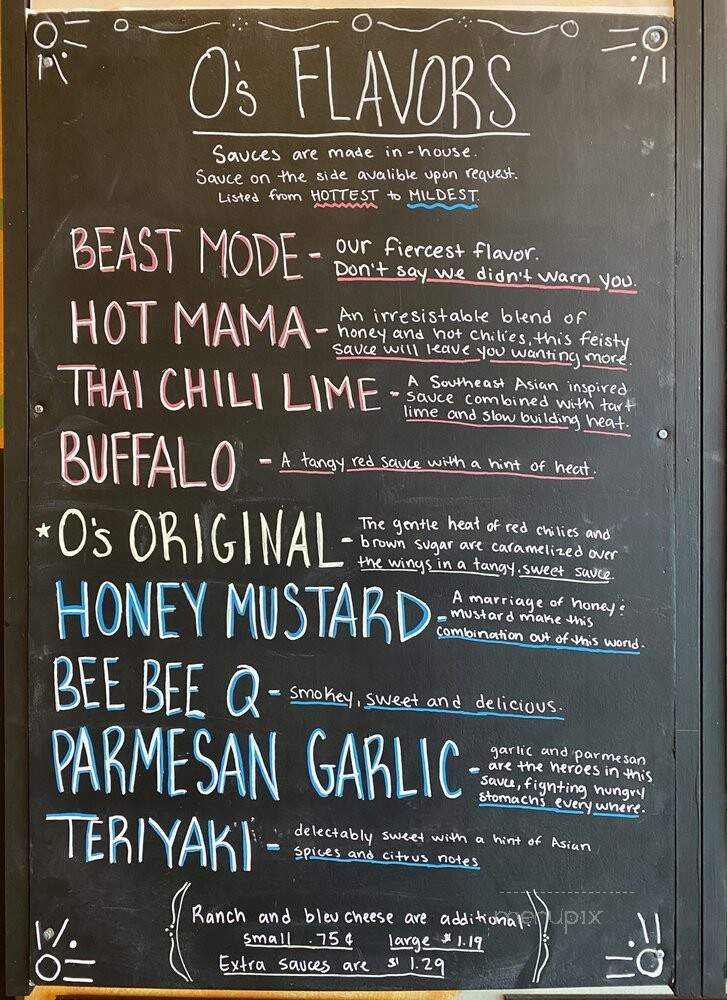 O's FLAVORS
Sauces are made in-house.
Sauce on the side avalible upon request.
Listed from HOTTEST to MILDEST.
BEAST MODE - our fiercest flavor.
Don't say we didn't warn you.
HOT MAMA - An irresistable blend of
honey and hot chilies, this feisty
sauce will leave you wanting more.
THAI CHILI LIME - A Southeast Asian inspired
sauce combined with tart
lime and slow building heat.
BUFFALO - A tangy red sauce with a hint of heat.
★ O's ORIGINAL - The gentle heat of red chilies and
brown sugar are caramelized over
the wings in a tangy, sweet sauce.
HONEY MUSTARD - A marriage of honey &
mustard make this
combination out of this world.
BEE BEE Q - smokey, sweet and delicious.
PARMESAN GARLIC - garlic and parmesan
are the heroes in this
sauce, fighting hungry
stomachs everywhere.
TERIYAKI - delectably sweet with a hint of Asian
spices and citrus notes
(Ranch and bleu cheese are additional.
small .75¢ large $1.19
Extra sauces are $1.29)
menupix